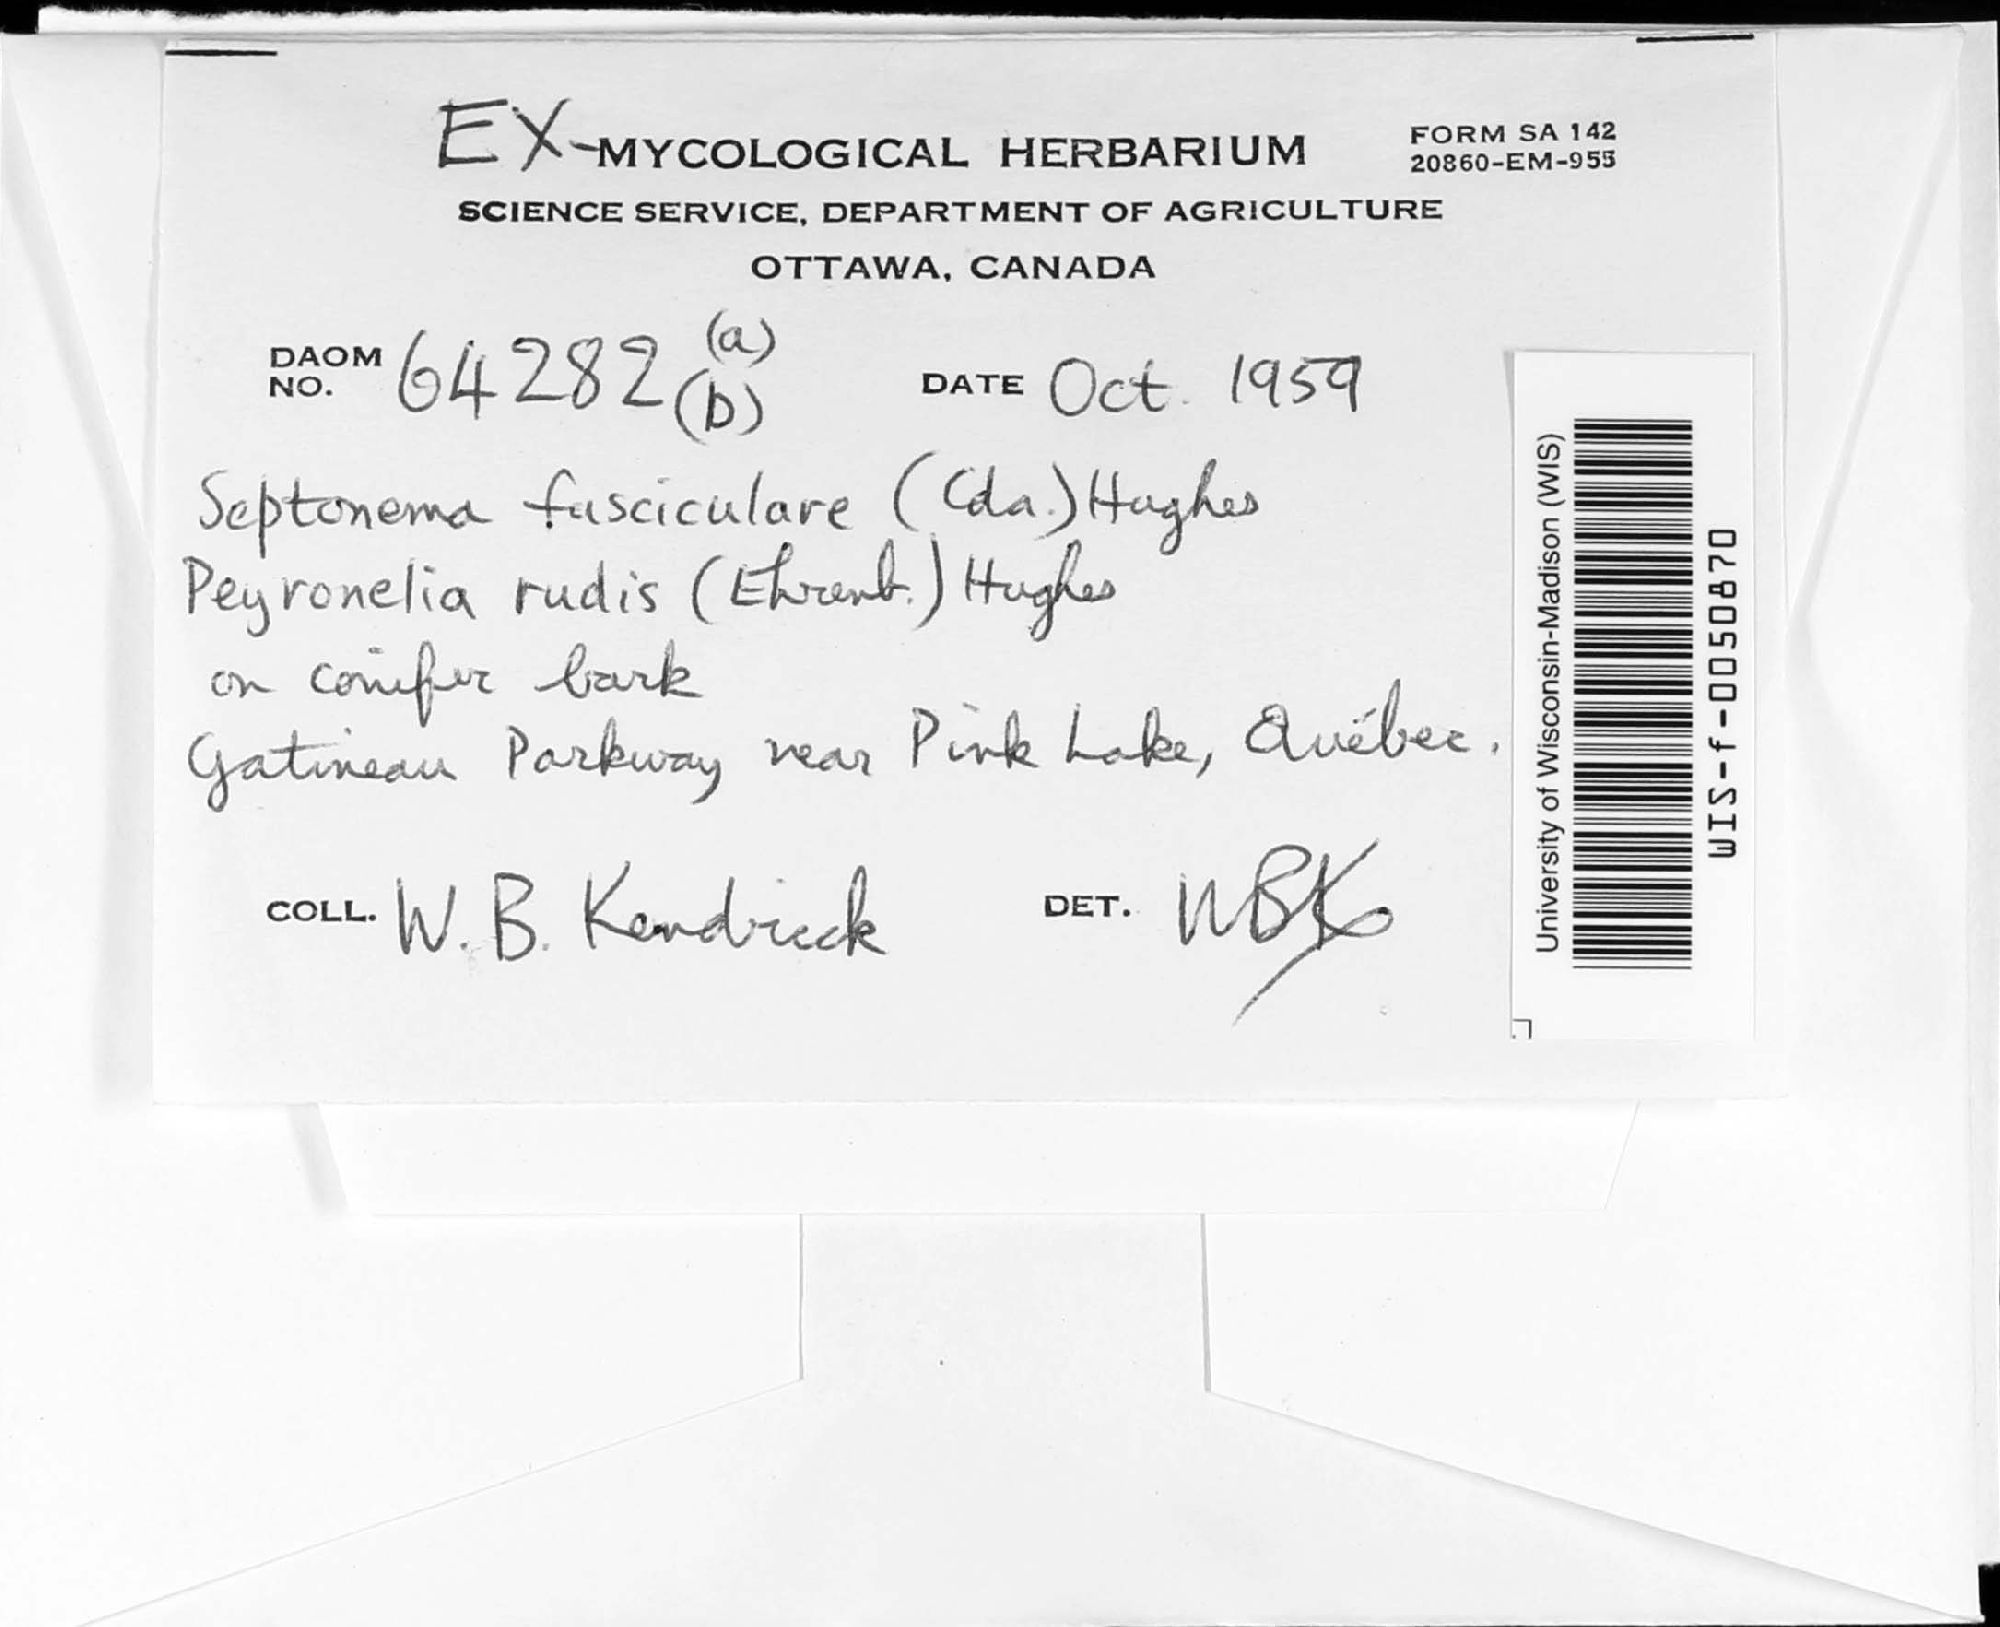 EX-MYCOLOGICAL HERBARIUM
FORM SA 142
20860-EM-955
SCIENCE SERVICE, DEPARTMENT OF AGRICULTURE
OTTAWA, CANADA
DAOM NO. 64282 (a) (b)
DATE Oct. 1959
Septonema fasciculare (Cda.) Hughes
Peyronelia rudis (Ehrenb.) Hughes
on conifer bark
Gatineau Parkway near Pink Lake, Québec.
COLL. W. B. Kendrick
DET. WBK
University of Wisconsin-Madison (WIS)
WIS-f-0050870